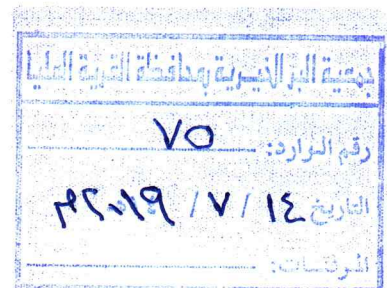 جمعية البر الخيرية بمحافظة القرية العليا
رقم الوارد: ٧٥
التاريخ ١٤ / ٧ / ٢٠١٩م
المرفقات: